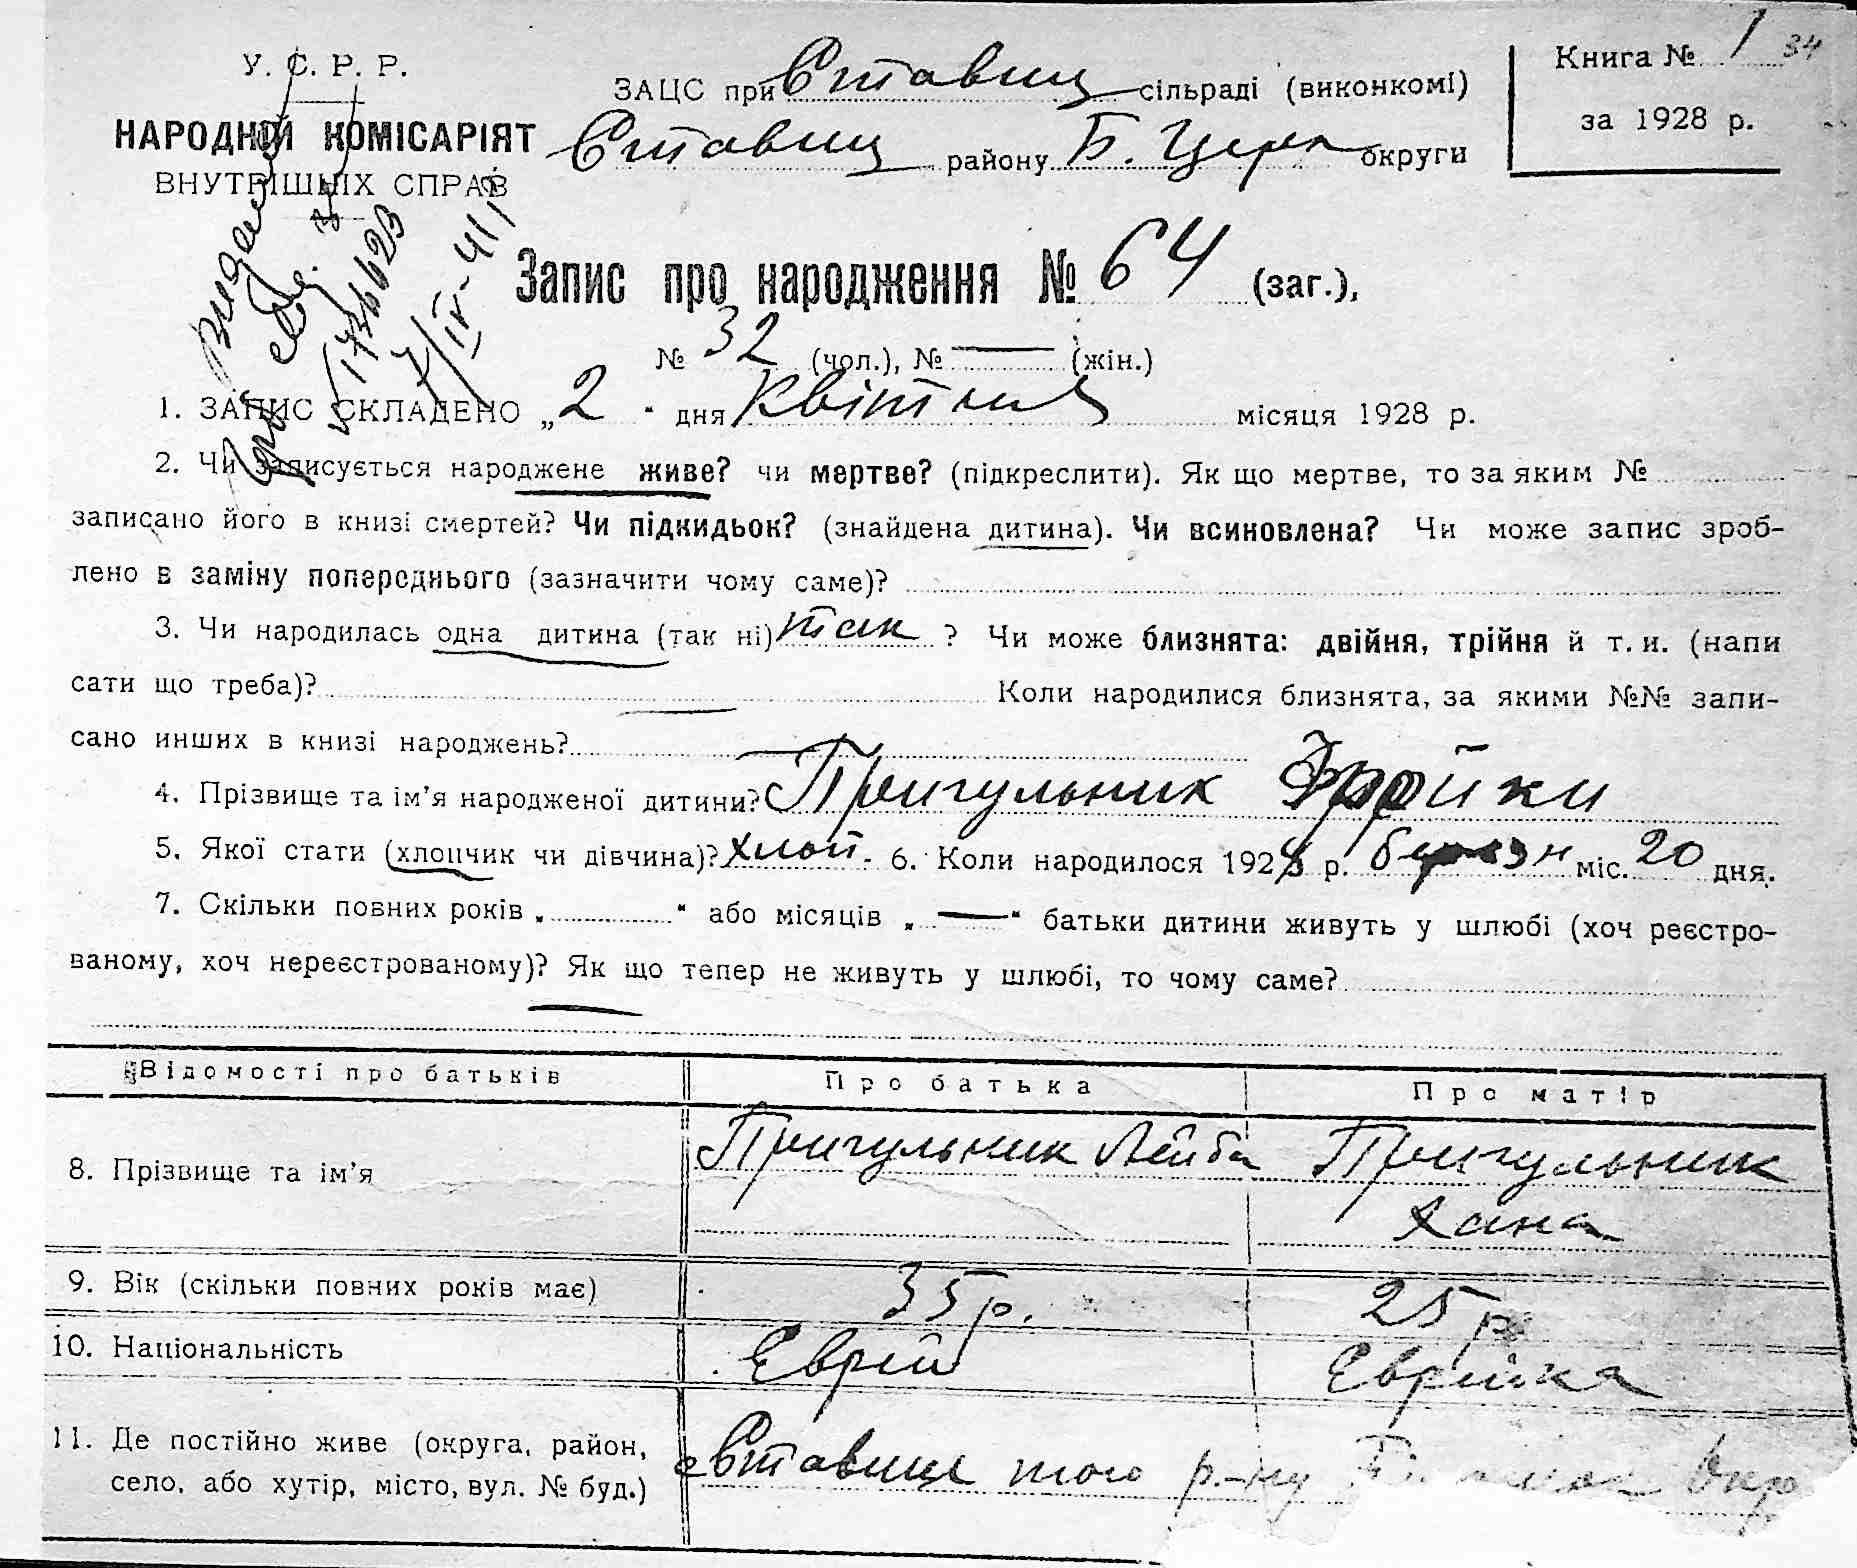 Книга № 1 34
за 1928 р.
У. С. Р. Р.
НАРОДНІЙ КОМІСАРІЯТ
ВНУТРІШНІХ СПРАВ
ЗАЦС при Ставищ сільраді (виконкомі)
Ставищ району Б. Церк округи
Запис про народження № 64 (заг.),
№ 32 (чол.), № — (жін.)
1. ЗАПИС СКЛАДЕНО „ 2 “ дня Квітня місяця 1928 р.
2. Чи записується народжене живе? чи мертве? (підкреслити). Як що мертве, то за яким №
записано його в книзі смертей? Чи підкидьок? (знайдена дитина). Чи всиновлена? Чи може запис зроб-
лено в заміну попереднього (зазначити чому саме)?
3. Чи народилась одна дитина (так ні) так ? Чи може близнята: двійня, трійня й т. и. (напи
сати що треба)? Коли народилися близнята, за якими №№ запи-
сано инших в книзі народжень?
4. Прізвище та ім’я народженої дитини? Пригульник
5. Якої стати (хлопчик чи дівчина)? хлоп. 6. Коли народилося 1928 р. березн міс. 20 дня.
7. Скільки повних років „ “ або місяців „ — “ батьки дитини живуть у шлюбі (хоч реєстро-
ваному, хоч нереєстрованому)? Як що тепер не живуть у шлюбі, то чому саме?
Відомості про батьків Про батька Про матір
8. Прізвище та ім’я Пригульник Лейба Пригульник
Хана
9. Вік (скільки повних років має) 35 р. 25 р
10. Національність Єврей Єврейка
11. Де постійно живе (округа, район,
село, або хутір, місто, вул. № буд.) Ставище того р-ну Окр